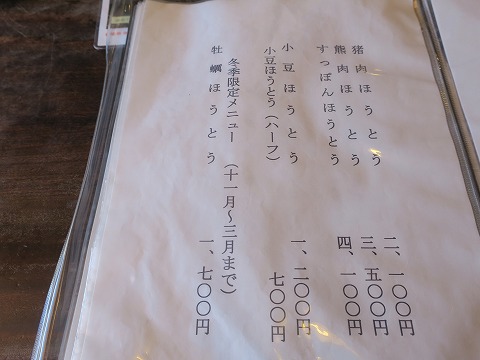 猪肉ほうとう 二、一〇〇円
熊肉ほうとう 三、五〇〇円
すっぽんほうとう 四、一〇〇円
小豆ほうとう 一、二〇〇円
小豆ほうとう（ハーフ） 七〇〇円
冬季限定メニュー （十一月～三月まで）
牡蠣ほうとう 一、七〇〇円